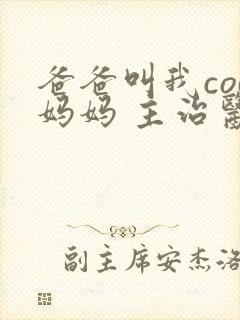 爸爸叫我co
妈妈 主治醫
副主席安杰洛